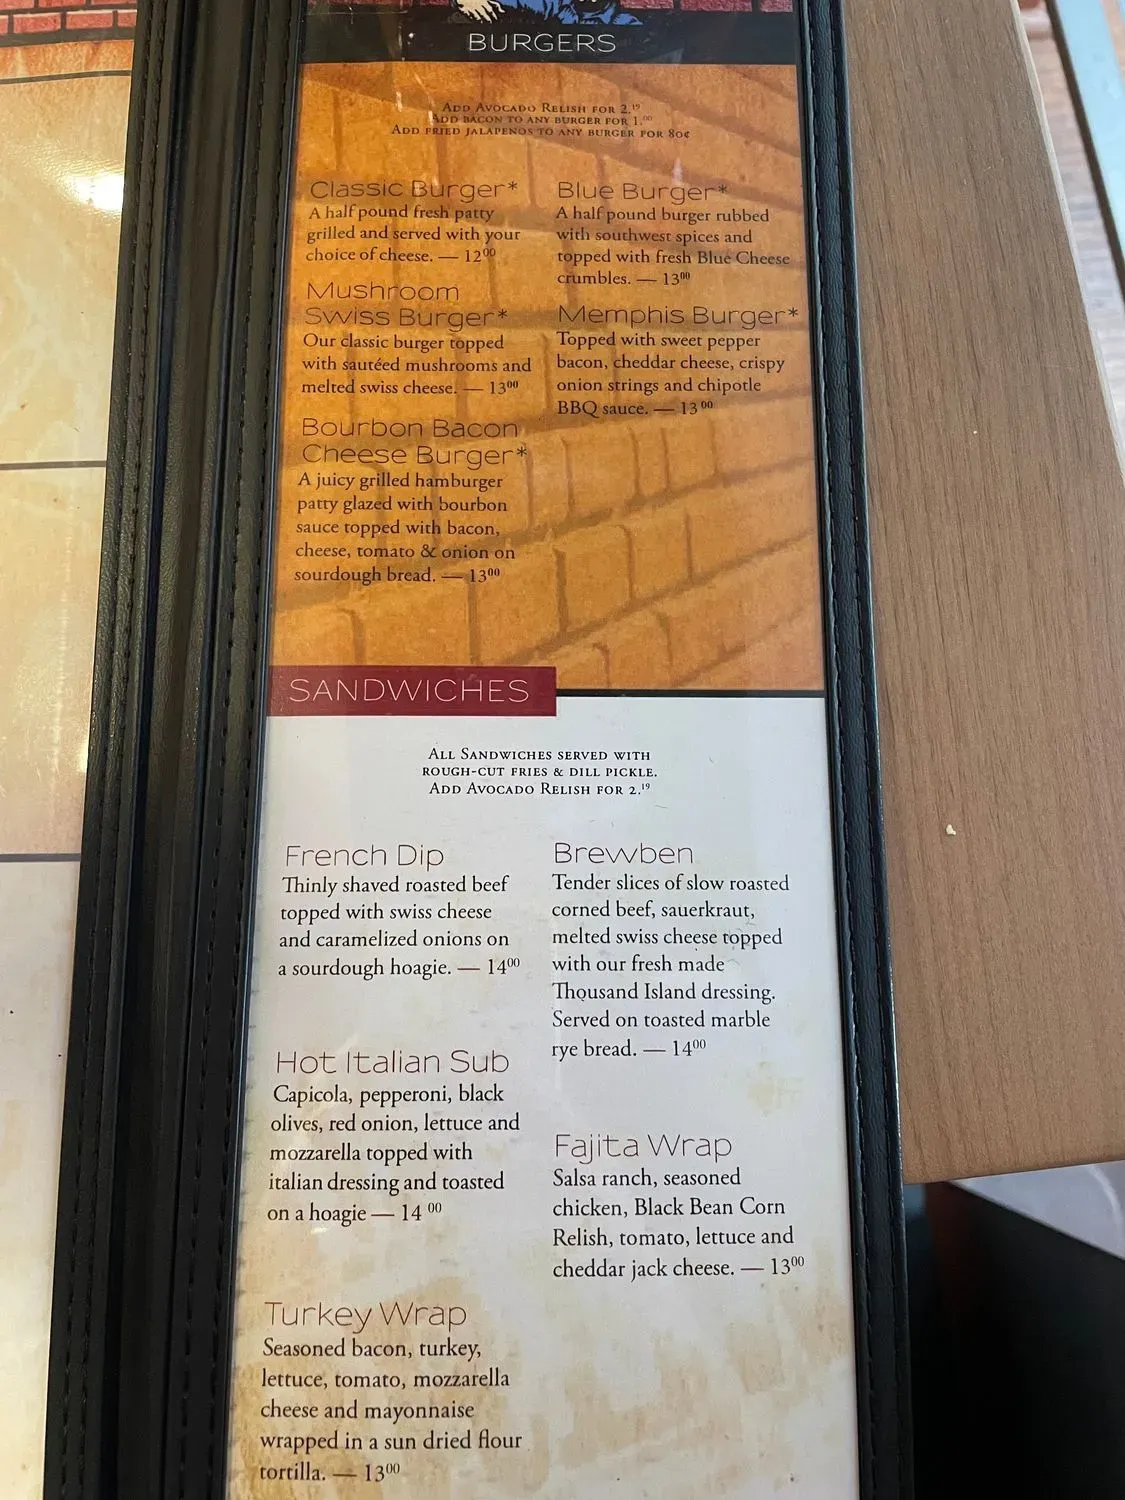 BURGERS
Add Avocado Relish for 2.19
Add bacon to any burger for 1.00
Add fried jalapenos to any burger for 80¢
Classic Burger*
A half pound fresh patty
grilled and served with your
choice of cheese. — 1200
Mushroom
Swiss Burger*
Our classic burger topped
with sautéed mushrooms and
melted swiss cheese. — 1300
Bourbon Bacon
Cheese Burger*
A juicy grilled hamburger
patty glazed with bourbon
sauce topped with bacon,
cheese, tomato & onion on
sourdough bread. — 1300
Blue Burger*
A half pound burger rubbed
with southwest spices and
topped with fresh Blue Cheese
crumbles. — 1300
Memphis Burger*
Topped with sweet pepper
bacon, cheddar cheese, crispy
onion strings and chipotle
BBQ sauce. — 13 00
SANDWICHES
All Sandwiches served with
rough-cut fries & dill pickle.
Add Avocado Relish for 2.19
French Dip
Thinly shaved roasted beef
topped with swiss cheese
and caramelized onions on
a sourdough hoagie. — 1400
Hot Italian Sub
Capicola, pepperoni, black
olives, red onion, lettuce and
mozzarella topped with
italian dressing and toasted
on a hoagie — 14 00
Turkey Wrap
Seasoned bacon, turkey,
lettuce, tomato, mozzarella
cheese and mayonnaise
wrapped in a sun dried flour
tortilla. — 1300
Brewben
Tender slices of slow roasted
corned beef, sauerkraut,
melted swiss cheese topped
with our fresh made
Thousand Island dressing.
Served on toasted marble
rye bread. — 1400
Fajita Wrap
Salsa ranch, seasoned
chicken, Black Bean Corn
Relish, tomato, lettuce and
cheddar jack cheese. — 1300